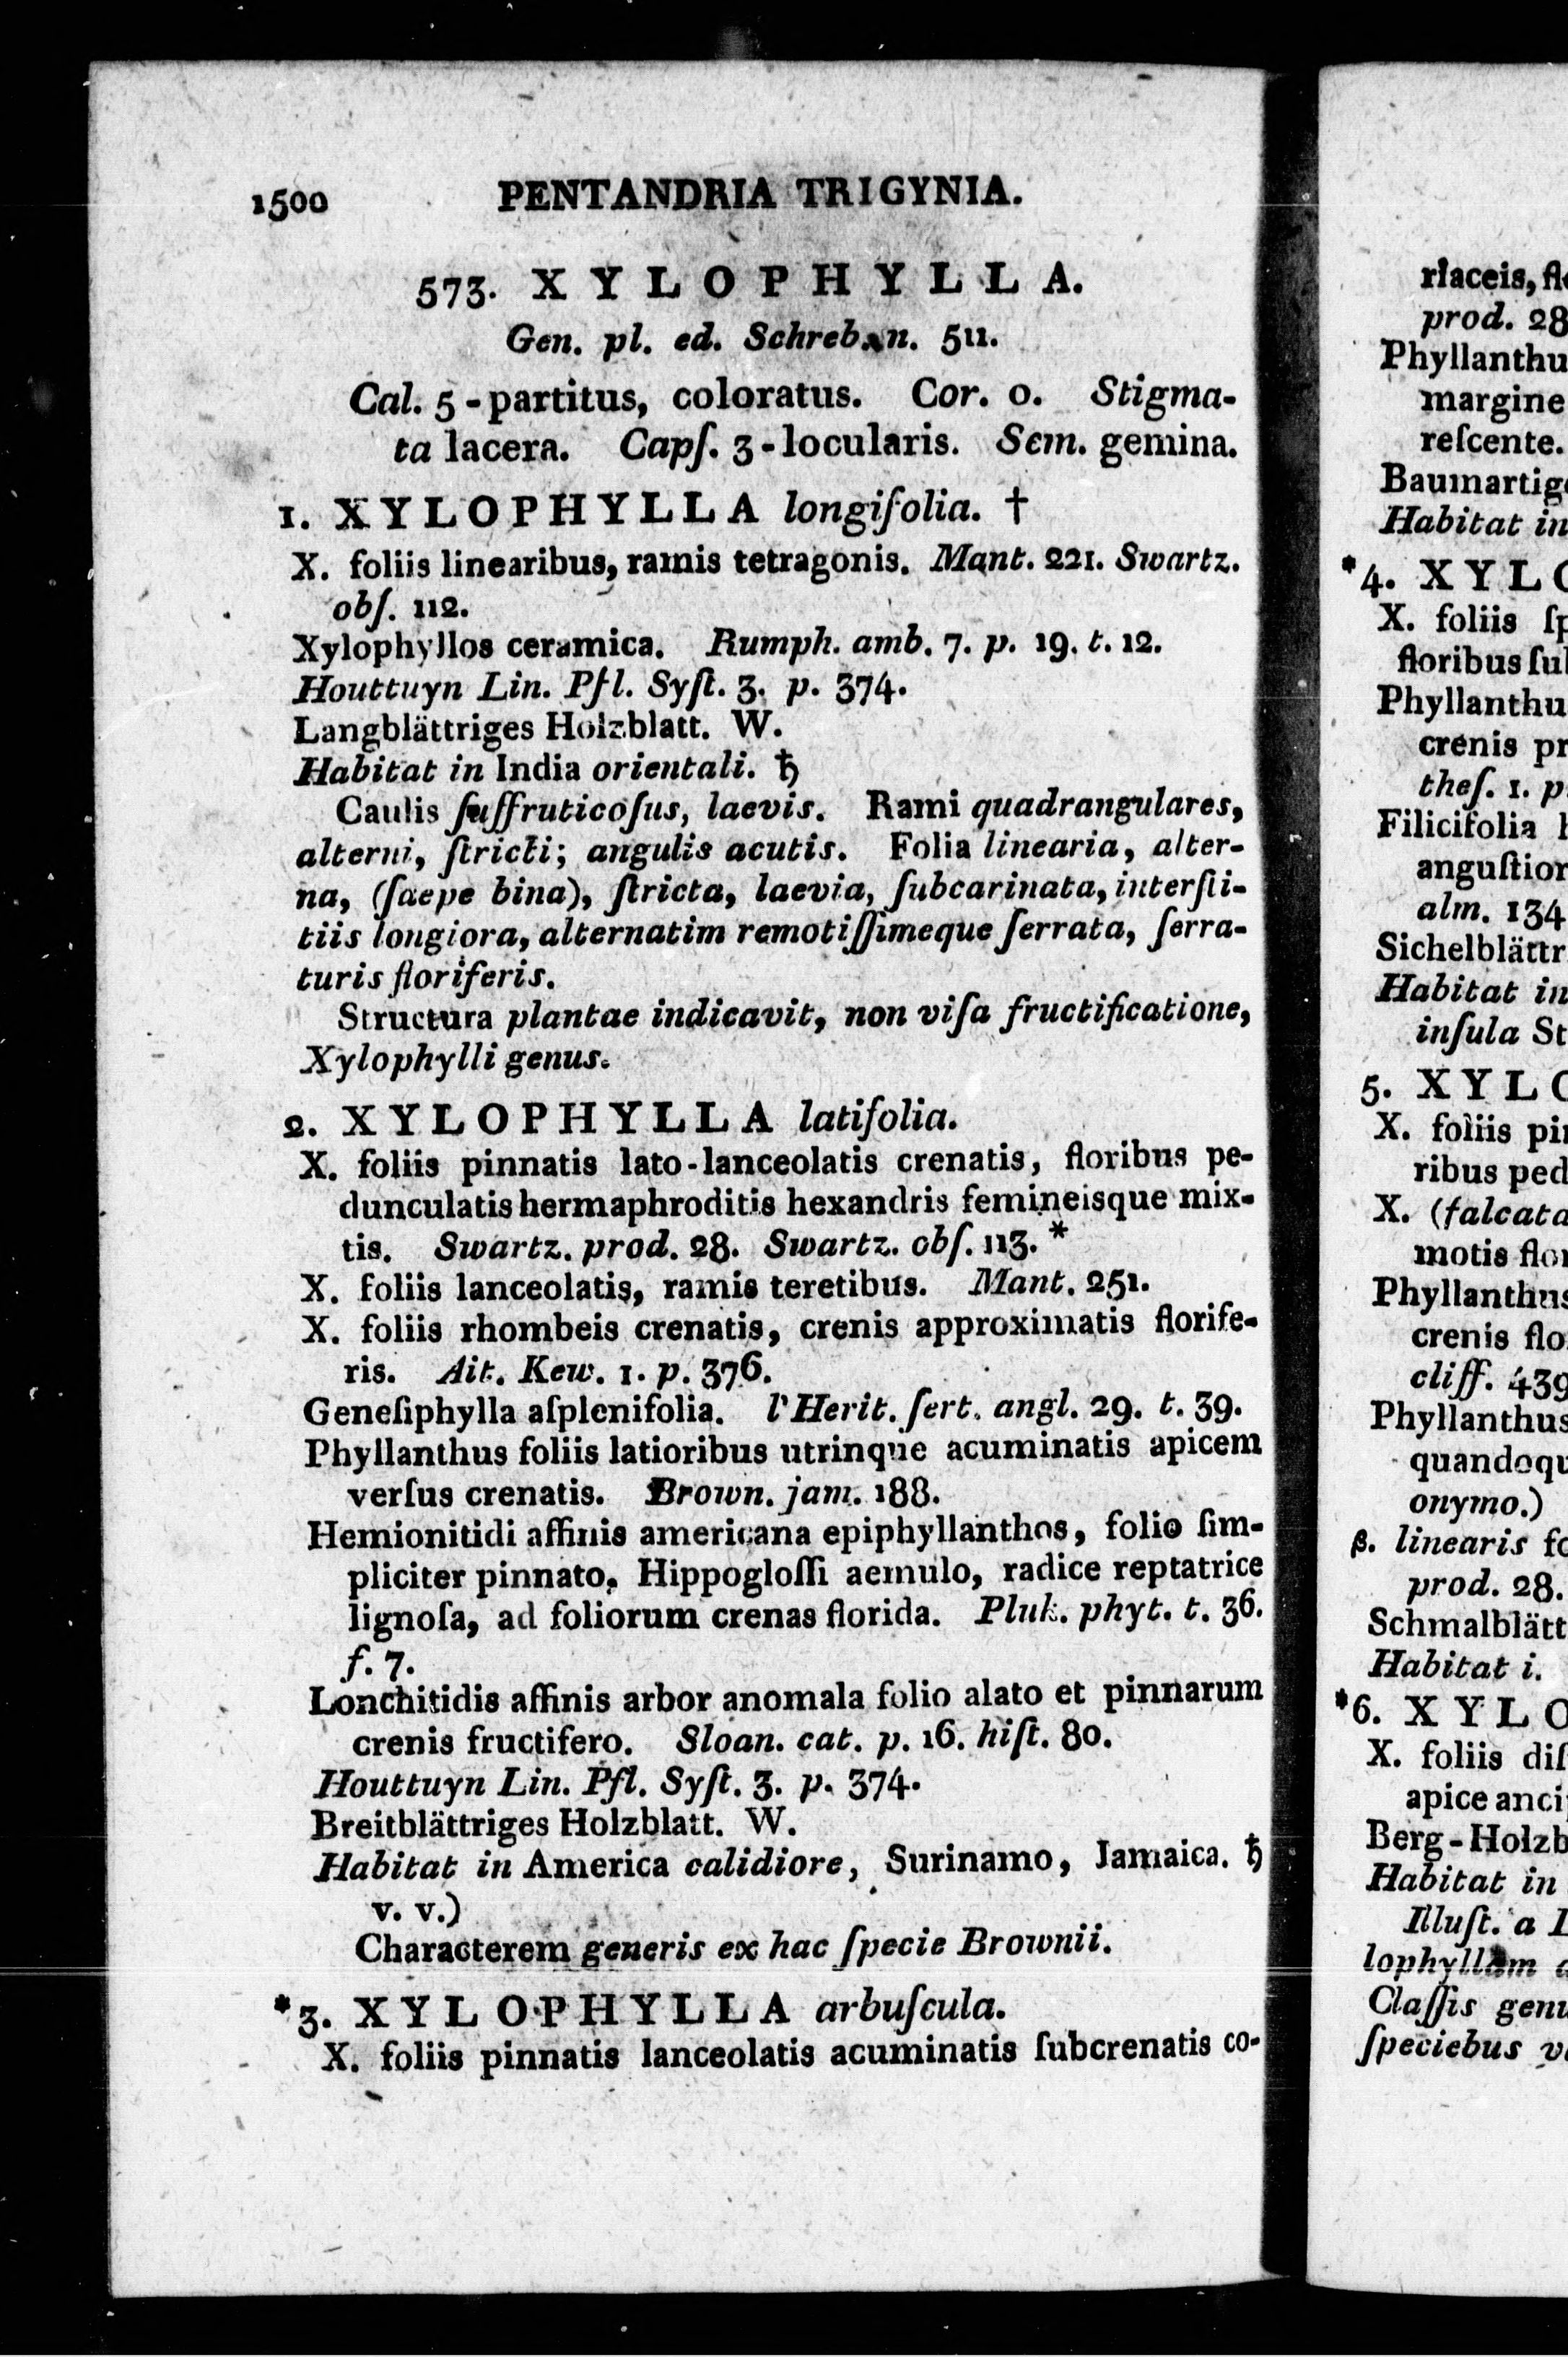 1500 PENTANDRIA TRIGYNIA.
573. XYLOPHYLLA.
Gen. pl. ed. Schreb. n. 511.
Cal. 5-partitus, coloratus. Cor. 0. Stigma-
ta lacera. Capſ. 3-locularis. Sem. gemina.
1. XYLOPHYLLA longifolia. †
X. foliis linearibus, ramis tetragonis. Mant. 221. Swartz.
obſ. 112.
Xylophyllos ceramica. Rumph. amb. 7. p. 19. t. 12.
Houttuyn Lin. Pfl. Syſt. 3. p. 374.
Langblättriges Holzblatt. W.
Habitat in India orientali. ♄
Caulis ſuffruticoſus, laevis. Rami quadrangulares,
alterni, ſtricti; angulis acutis. Folia linearia, alter-
na, (ſaepe bina), ſtricta, laevia, ſubcarinata, interſti-
tiis longiora, alternatim remotiſſimeque ſerrata, ſerra-
turis floriferis.
Structura plantae indicavit, non viſa fructificatione,
Xylophylli genus.
2. XYLOPHYLLA latifolia.
X. foliis pinnatis lato-lanceolatis crenatis, floribus pe-
dunculatis hermaphroditis hexandris femineisque mix-
tis. Swartz. prod. 28. Swartz. obſ. 113. *
X. foliis lanceolatis, ramis teretibus. Mant. 251.
X. foliis rhombeis crenatis, crenis approximatis florife-
ris. Ait. Kew. 1. p. 376.
Geneſiphylla aſplenifolia. l'Herit. ſert. angl. 29. t. 39.
Phyllanthus foliis latioribus utrinque acuminatis apicem
verſus crenatis. Brown. jam. 188.
Hemionitidi affinis americana epiphyllanthos, folio ſim-
pliciter pinnato, Hippogloſſi aemulo, radice reptatrice
lignoſa, ad foliorum crenas florida. Pluk. phyt. t. 36.
f. 7.
Lonchitidis affinis arbor anomala folio alato et pinnarum
crenis fructifero. Sloan. cat. p. 16. hiſt. 80.
Houttuyn Lin. Pfl. Syſt. 3. p. 374.
Breitblättriges Holzblatt. W.
Habitat in America calidiore, Surinamo, Jamaica. ♄
v. v.)
Characterem generis ex hac ſpecie Brownii.
*3. XYLOPHYLLA arbuſcula.
X. foliis pinnatis lanceolatis acuminatis ſubcrenatis co-
riaceis,
prod. 28
Phyllanthu
margine
reſcente.
Baumartig
Habitat in
*4. XYLO
X. foliis ſp
floribus ſu
Phyllanthu
crenis pr
theſ. 1. p
Filicifolia
anguſtior
alm. 134
Sichelblättr
Habitat in
inſula St
5. XYLO
X. foliis pi
ribus ped
X. (falcata
motis flo
Phyllanthus
crenis flo
cliff. 439
Phyllanthus
quandoqu
onymo.)
β. linearis fo
prod. 28.
Schmalblätt
Habitat i.
*6. XYLO
X. foliis diſ
apice anci
Berg-Holzb
Habitat in
Illuſt. a L
lophyllam
Claſſis genu
ſpeciebus v